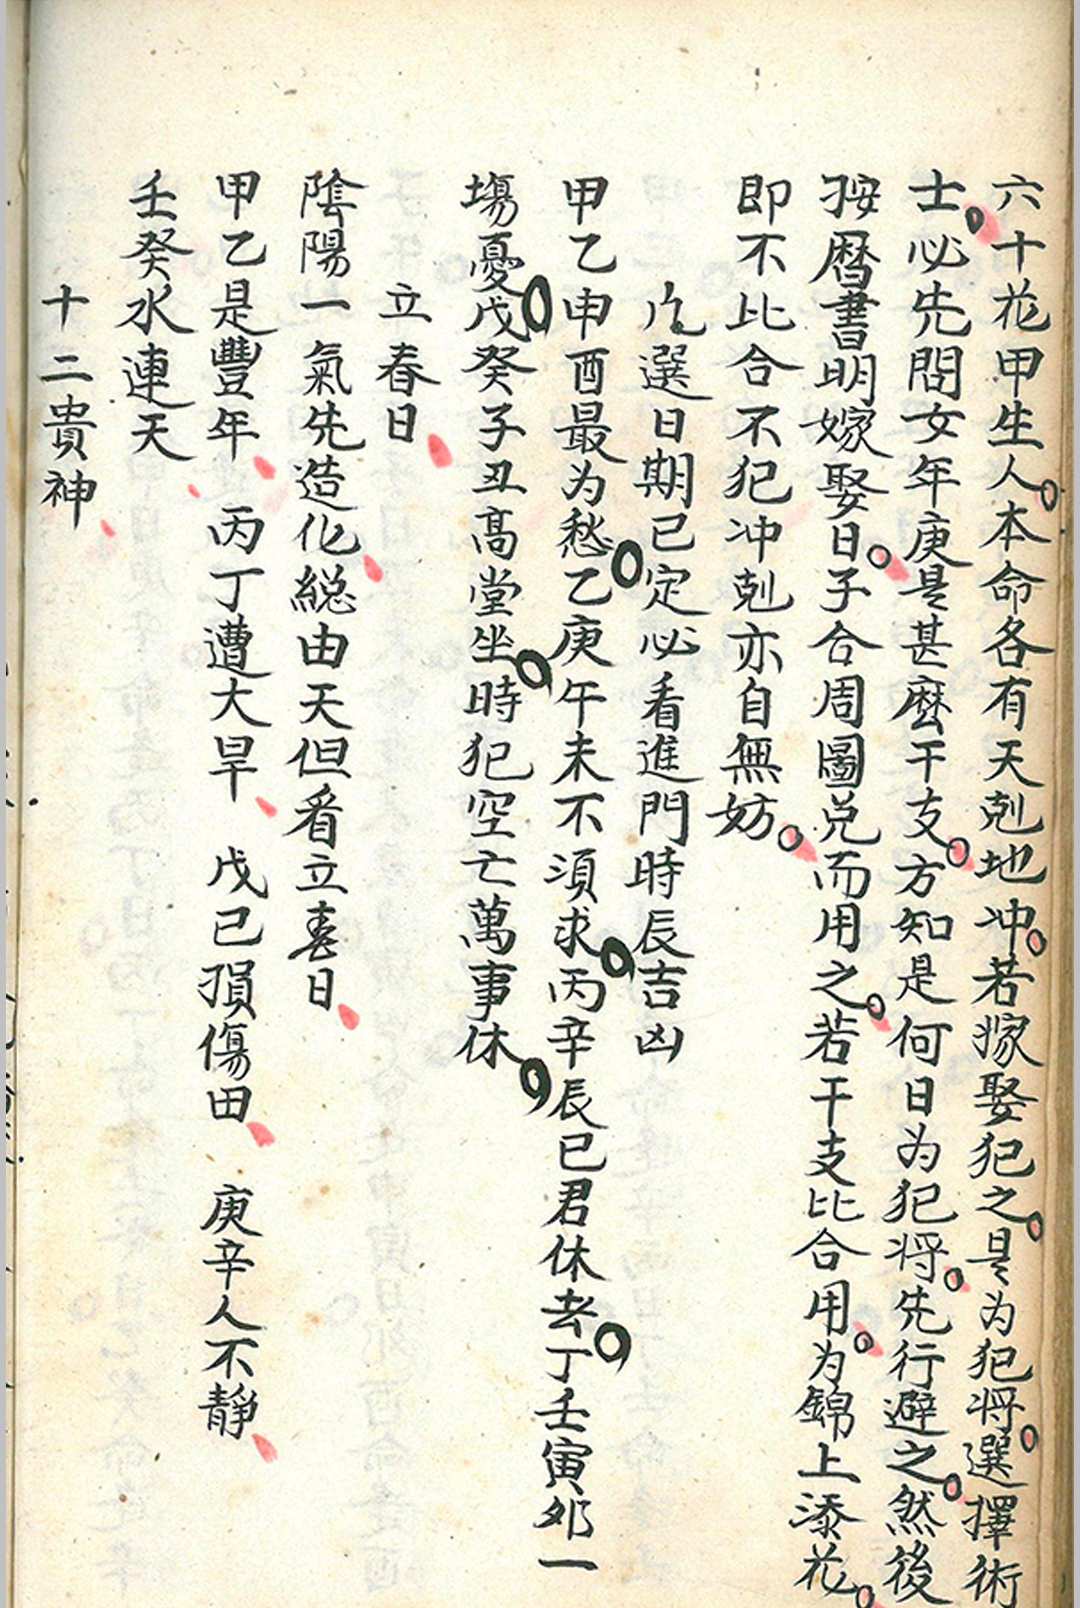 六十花甲生人。本命各有天剋地冲。若嫁娶犯之。是为犯将。選擇術
士。必先問女年庚是甚麽干支。方知是何日为犯将。先行避之。然後
按曆書明嫁娶日。子合周圖兑而用之。若干支比合用。为錦上添花。
即不比合不犯冲剋亦自無妨。
凢選日期已定必看進門時辰吉凶
甲乙申酉最为愁。乙庚午未不須求。丙辛辰巳君休去。丁壬寅夘一
塲憂。戊癸子丑髙堂坐。時犯空亡萬事休。
立春日
陰陽一氣先造化總由天但看立春日
甲乙是豐年 丙丁遭大旱 戊己損傷田 庚辛人不靜
壬癸水連天
十二貴神